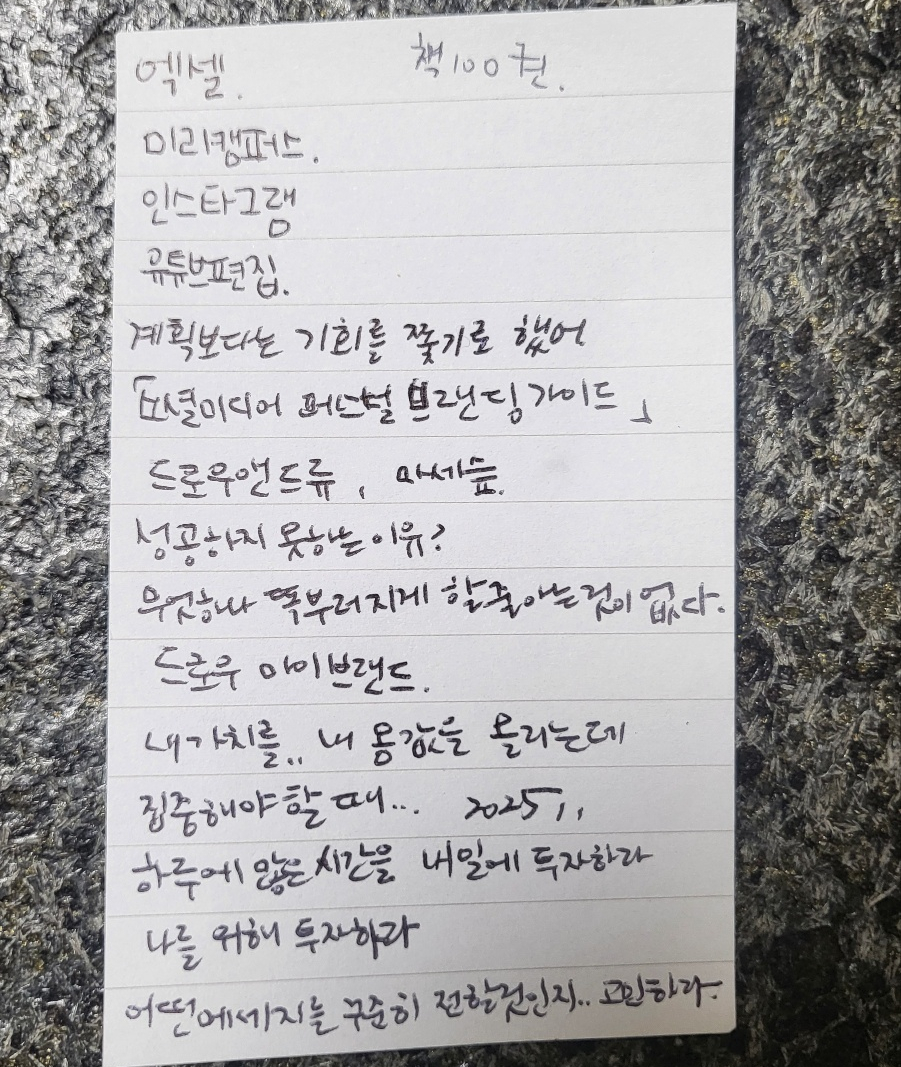 엑셀. 책 100권.
미리캠퍼스.
인스타그램
유튜브편집.
계획보다는 기회를 쫓기로 했어
「소셜미디어 퍼스널 브랜딩가이드」
드로우앤드류, 마세슾.
성공하지 못하는이유?
무엇하나 똑부러지게 할줄아는것이 없다.
드로우 마이브랜드.
내가치를.. 내 몸값을 올리는데
집중해야할 때... 2025,,
하루에 많은시간을 내일에 투자하라
나를 위해 투자하라
어떤메세지를 꾸준히 전할것인지.. 고민하라.